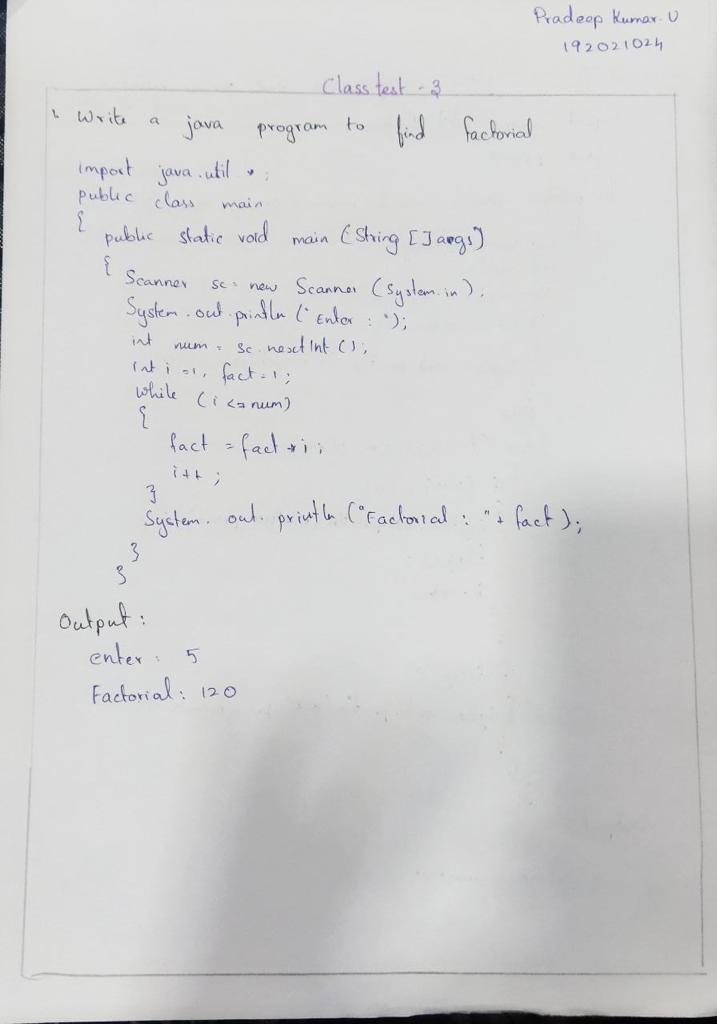 Pradeep Kumar. U
192021024
Class test - 3
1. Write a java program to find factorial
import java.util *;
public class main
{
public static void main (String []args)
{
Scanner sc = new Scanner (System.in);
System.out.println ("Enter : ");
int num = sc.nextInt ();
int i =1, fact=1;
while (i <= num)
{
fact = fact * i;
i++;
}
System.out.println ("Factorial : " + fact);
}
}
Output:
enter: 5
Factorial: 120